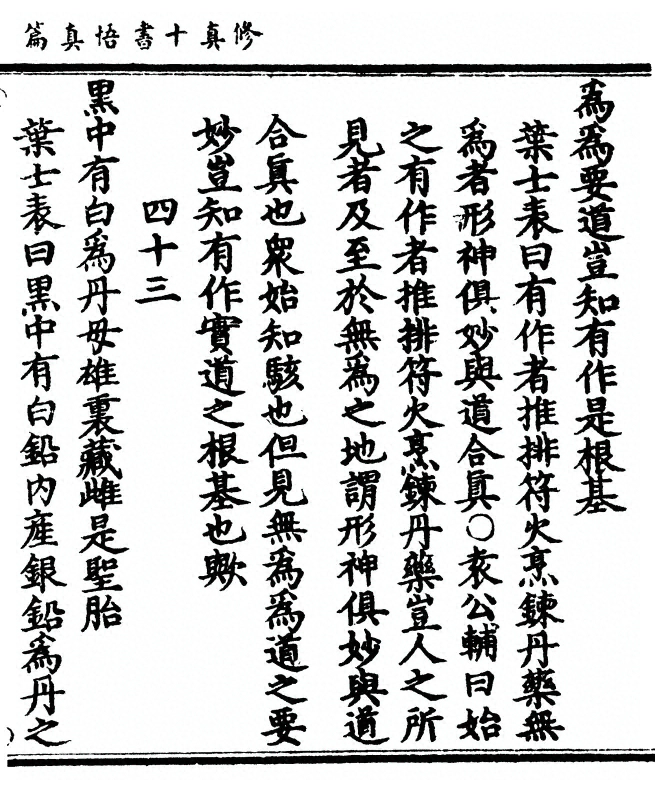 修真十書悟真篇
為為要道豈知有作是根基
葉士表曰有作者推排符火烹鍊丹藥無
爲者形神俱妙與道合眞○袁公輔曰始
之有作者推排符火烹鍊丹藥豈人之所
見者及至於無爲之地謂形神俱妙與道
合眞也衆始知駭也但見無為為道之要
妙豈知有作實道之根基也歟
四十三
黑中有白爲丹母雄裏藏雌是聖胎
葉士表曰黑中有白鉛內產銀鉛爲丹之